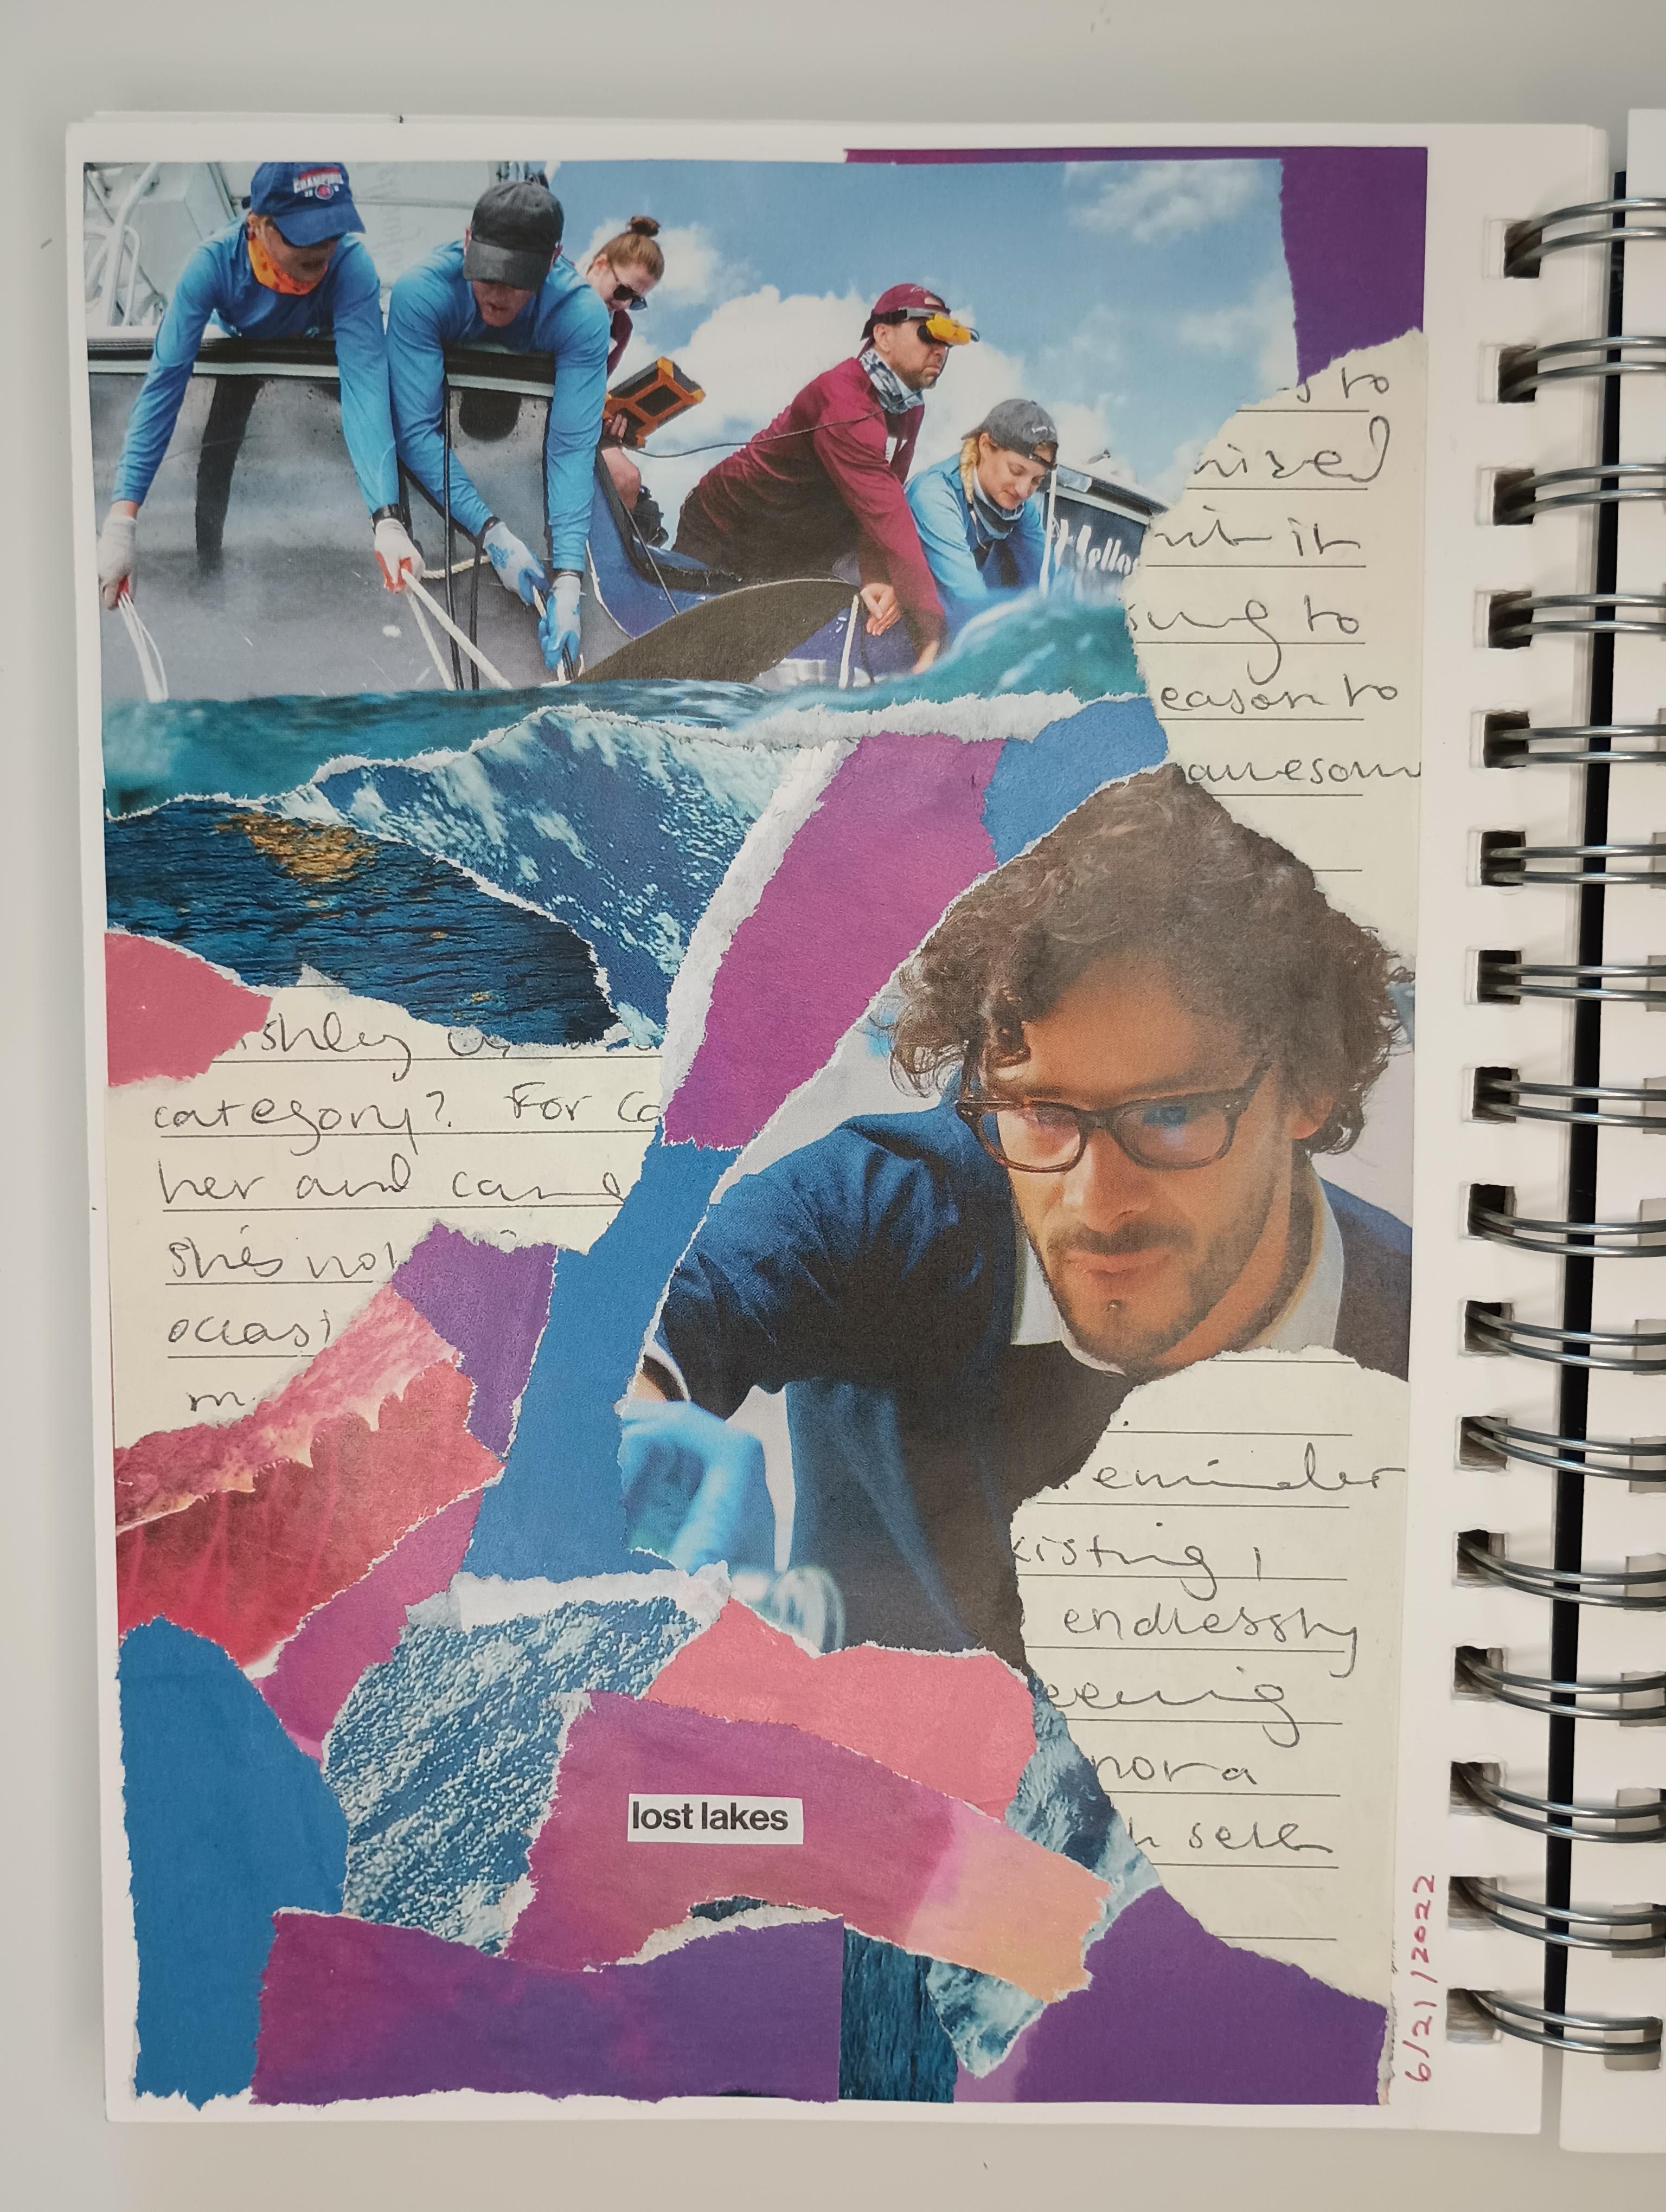 CHAMPIONS
to
but it
to
eason to
awesom
shley
category? For Ca
her and came
she's not
occasi
m
eminder
xisting,
endlessly
eeing
nora
h self
lost lakes
6/21/2022